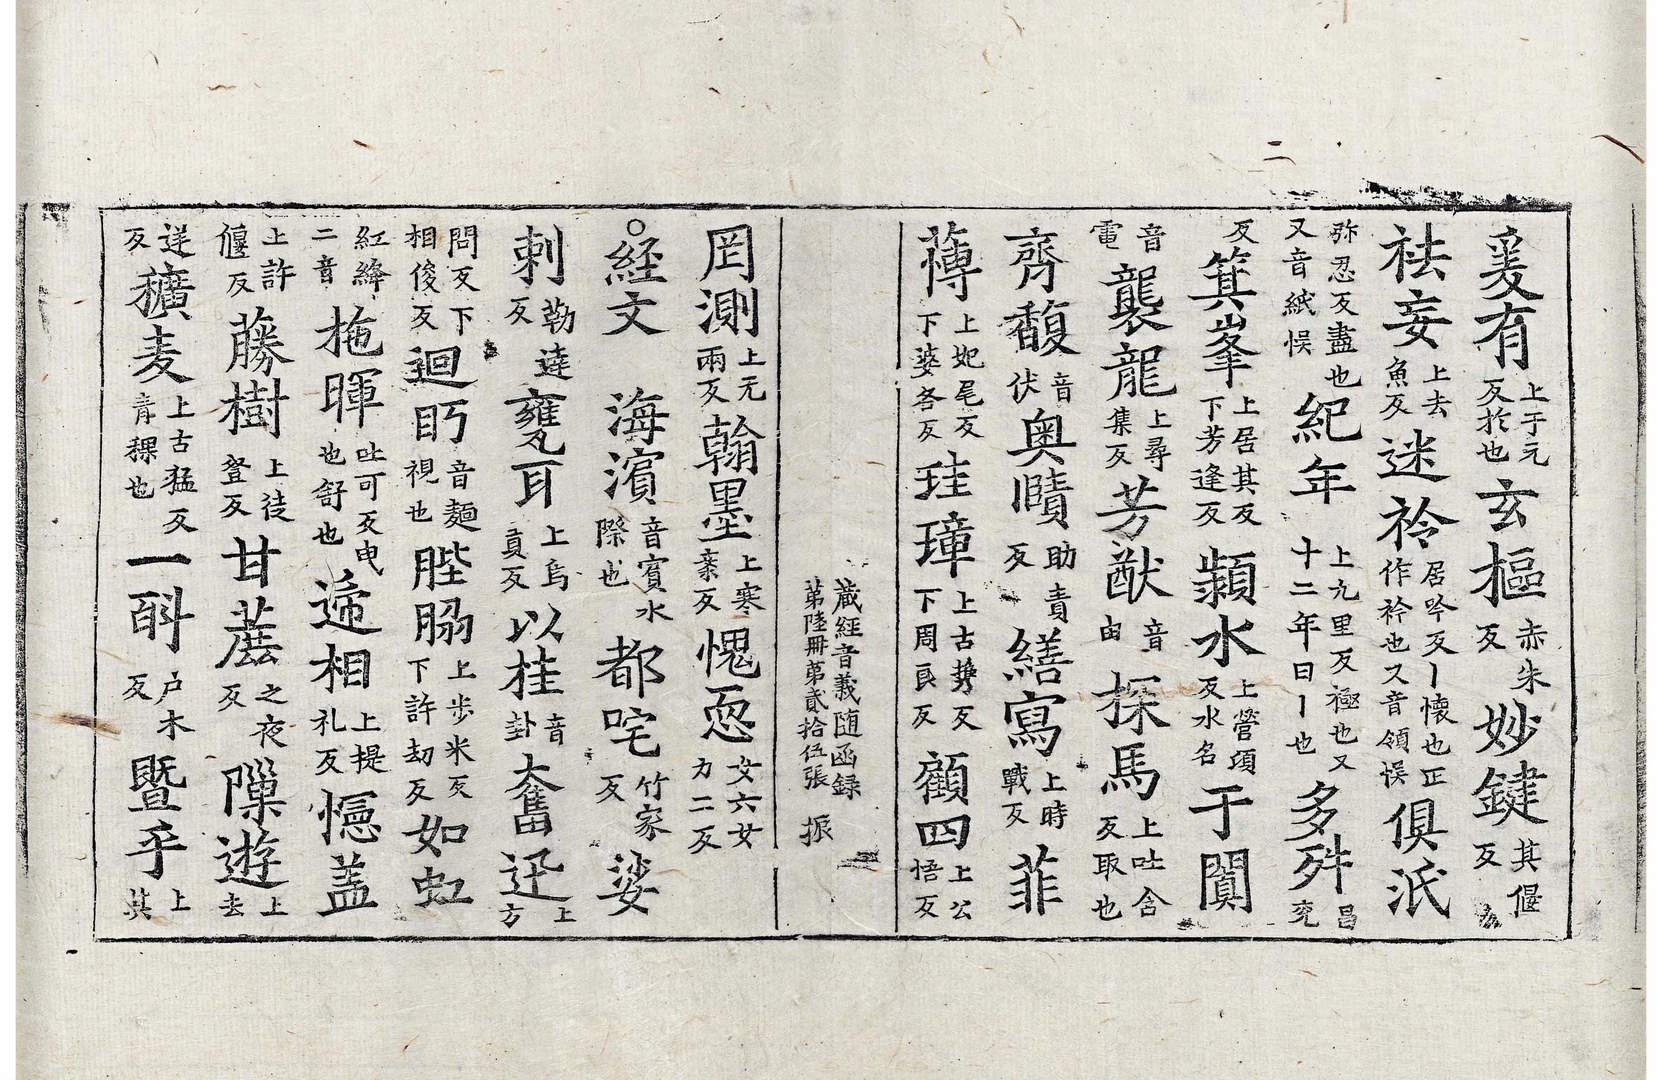 二
爰有上于元反於也玄樞赤朱反妙鍵其偃反
袪妄上去魚反迷衿居吟反丨懷也正作衿也又音領悮俱泯
弥忍反盡也又音紙悮紀年上九里反極也又十二年曰丨也多舛昌兖
反箕峯上居其反下芳逢反潁水上營頃反水名于闐
音電龔龍上尋集反芳猷音由探馬上吐含反取也
齊馥音伏奥賾助責反繕寫上時戰反菲
薄上妃尾反下婆各反珪璋上古携反下周良反顧四上公悟反
藏經音義随函録
第陸冊第貳拾伍張 振
罔測上无兩反翰墨上寒案反愧恧女六女力二反
○経文 海濵音賓水際也都咤竹家反娑
剌勒達反甕耳上烏貢反以桂音卦奮迅上方
問反下相俊反迴眄音麺視也䏶脇上步米反下許刧反如虹
紅絳二音拖暉吐可反曳也舒也遞相上提礼反幰盖
上許偃反藤樹上徒登反甘蔗之夜反隟遊上去
逆反穬麦上古猛反青稞也一㪷户木反暨乎上其